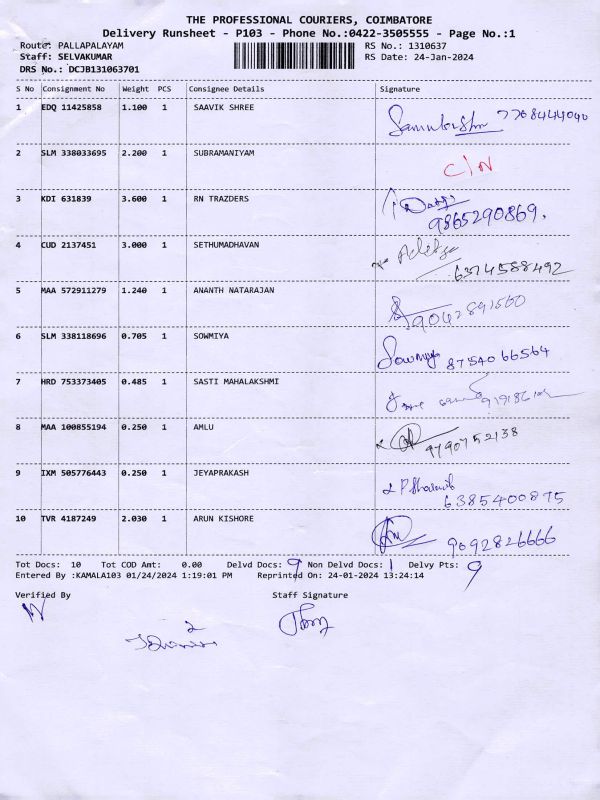 THE PROFESSIONAL COURIERS, COIMBATORE
Delivery Runsheet - P103 - Phone No.:0422-3505555 - Page No.:1
Route: PALLAPALAYAM RS No.: 1310637
Staff: SELVAKUMAR RS Date: 24-Jan-2024
DRS No.: DCJB131063701
S No Consignment No Weight PCS Consignee Details Signature
1 EDQ 11425858 1.100 1 SAAVIK SHREE 7708444040
2 SLM 338033695 2.200 1 SUBRAMANIYAM C/N
3 KDI 631839 3.600 1 RN TRAZDERS
9865290869.
4 CUD 2137451 3.000 1 SETHUMADHAVAN
6374588492
5 MAA 572911279 1.240 1 ANANTH NATARAJAN
9042891560
6 SLM 338118696 0.705 1 SOWMIYA Sowmya 8754066564
7 HRD 753373405 0.485 1 SASTI MAHALAKSHMI
8 MAA 100855194 0.250 1 AMLU 9790752138
9 IXM 505776443 0.250 1 JEYAPRAKASH
6385400875
10 TVR 4187249 2.030 1 ARUN KISHORE 9092826666
Tot Docs: 10 Tot COD Amt: 0.00 Delvd Docs: 9 Non Delvd Docs: 1 Delvy Pts: 9
Entered By :KAMALA103 01/24/2024 1:19:01 PM Reprinted On: 24-01-2024 13:24:14
Verified By Staff Signature